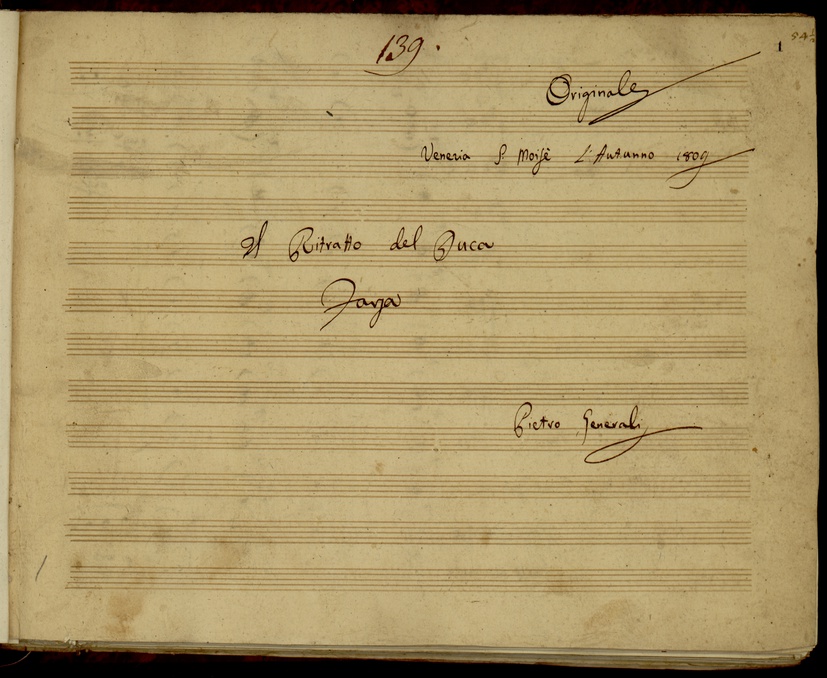 139.
1
54½
Originale
Venezia S. Moisè L'Autunno 1809
Il Ritratto del Duca
Farsa
Pietro Generali